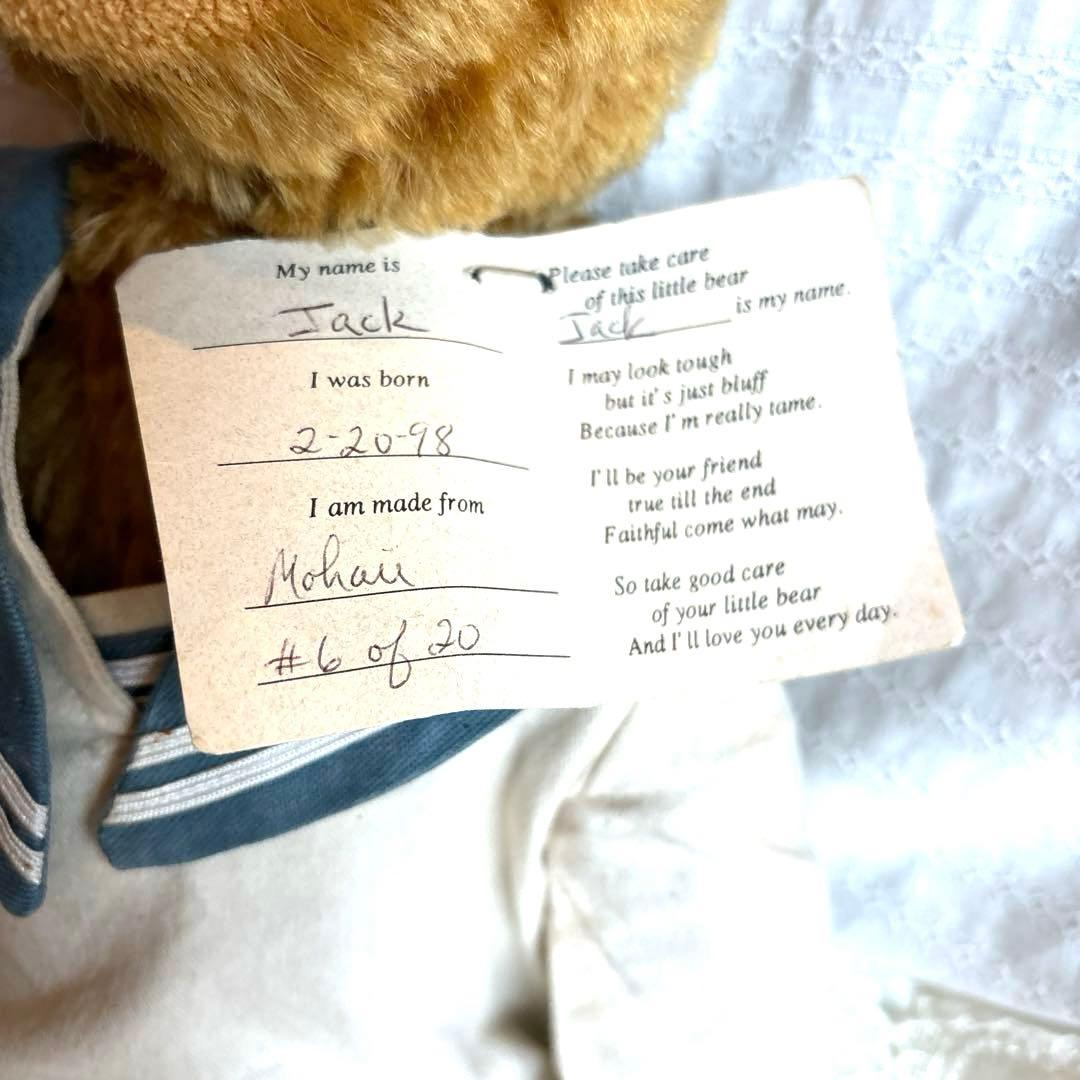 My name is
Jack
I was born
2-20-98
I am made from
Mohair
#6 of 20
Please take care
of this little bear
Jack is my name.
I may look tough
but it's just bluff
Because I'm really tame.
I'll be your friend
true till the end
Faithful come what may.
So take good care
of your little bear
And I'll love you every day.